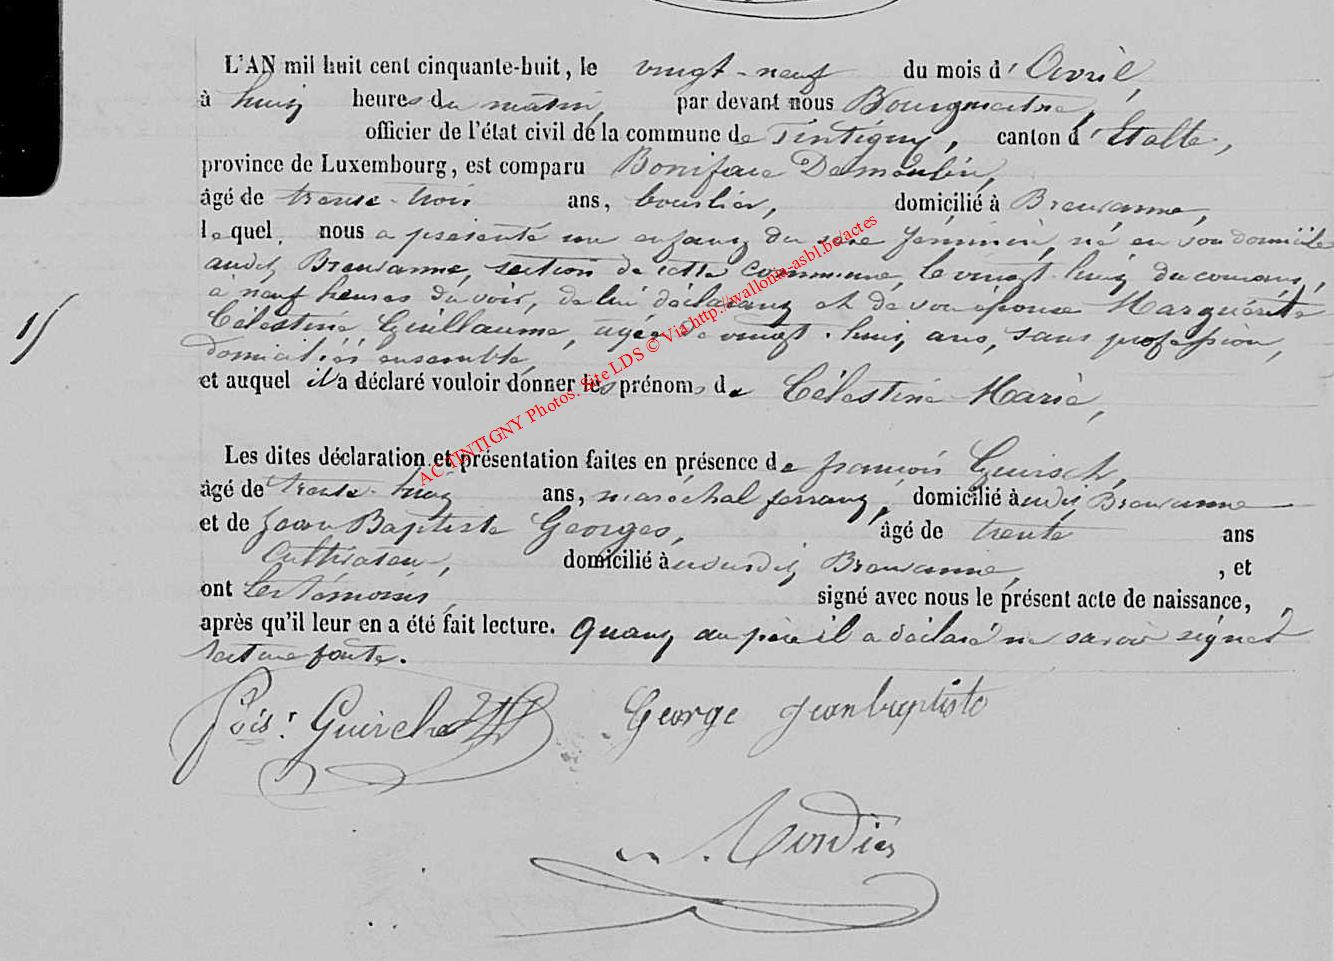 L'AN mil huit cent cinquante-huit, le vingt-neuf du mois d'Avril,
à huit heures du matin, par devant nous Bourgmestre,
officier de l'état civil de la commune de Tintigny, canton d'Etalle,
province de Luxembourg, est comparu Boniface Demoulin,
âgé de trente-trois ans, domicilié à Breuvanne,
lequel, nous a présenté un enfant du sexe féminin, né en son domicile
audit Breuvanne, section de cette commune, le vingt-huit du courant,
a neuf heures du soir, de lui déclarant et de son épouse Marguérite
Célestine Guillaume, agée de vingt-huit ans, sans profession,
domiciliés ensemble,
15
et auquel il a déclaré vouloir donner les prénoms de Célestine Marie,
Les dites déclaration et présentation faites en présence de françois Guirsch,
âgé de trente-huit ans, maréchal ferrant, domicilié audit Breuvanne
et de Jean Baptiste Georges, âgé de trente ans
Cultivateur, domicilié à susdit Breuvanne, , et
ont les témoins, signé avec nous le présent acte de naissance,
après qu'il leur en a été fait lecture. Quant au père il a déclaré ne savoir signer
lecture faite.
fois. Guirche George jeanbaptiste
AC TINTIGNY Photos. Site LDS © Via http://wallonia-asbl.be/actes